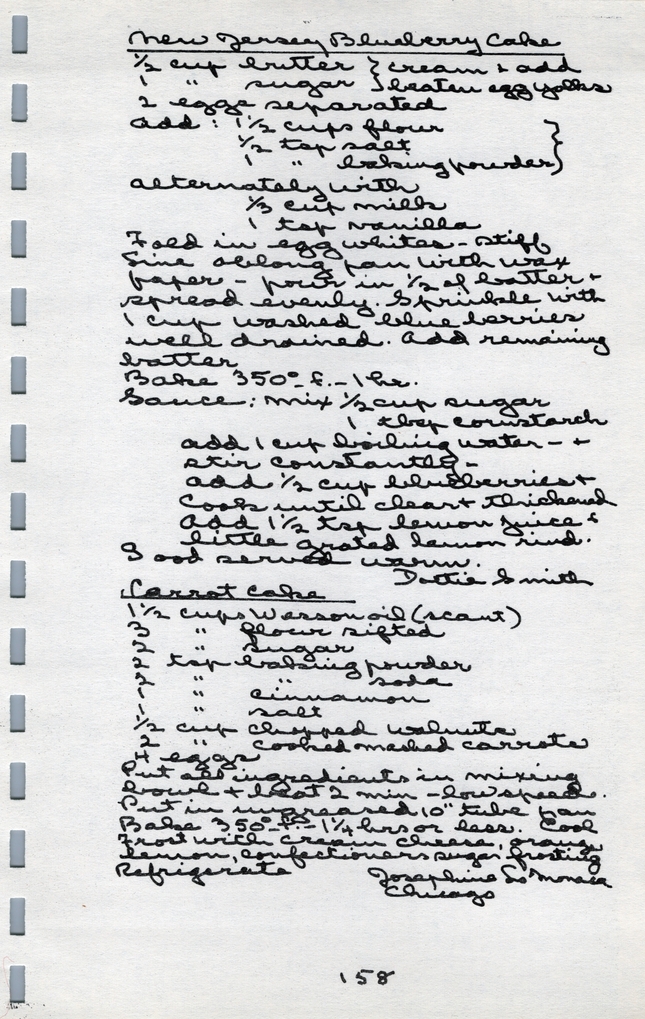 New Jersey Blueberry Cake
1/2 cup butter } cream + add
1 " sugar } beaten egg yolks
2 eggs separated
add: 1 1/2 cups flour }
1/2 tsp salt
1 " baking powder }
alternately with
1/3 cup milk
1 tsp vanilla
Fold in egg whites - stiff
Line oblong pan with wax
paper - pour in 1/2 of batter +
spread evenly. Sprinkle with
1 cup washed blue berries
well drained. Add remaining
batter
Bake 350° F. - 1 hr.
Sauce: mix 1/2 cup sugar
1 tbsp cornstarch
add 1 cup boiling water - +
stir constantly -
add 1/2 cup blueberries +
Cook until clear + thickened
Add 1 1/2 tsp lemon juice +
little grated lemon rind.
Good served warm.
Dottie Smith
Carrot Cake
1 1/2 cups Wesson oil (scant)
3 " flour sifted
2 " sugar
2 tsp baking powder
2 " " soda
1 " cinnamon
1 " salt
1/2 cup chopped walnuts
2 " cooked mashed carrots
4 eggs
Put all ingredients in mixing
bowl + beat 2 min - low speed.
Put in ungreased 10" tube pan
Bake 350° F. - 1 1/4 hrs or less. Cool
Frost with cream cheese, orange
lemon, confectioners sugar frosting
Refrigerate Josephine Lo Monaca
Chicago
158